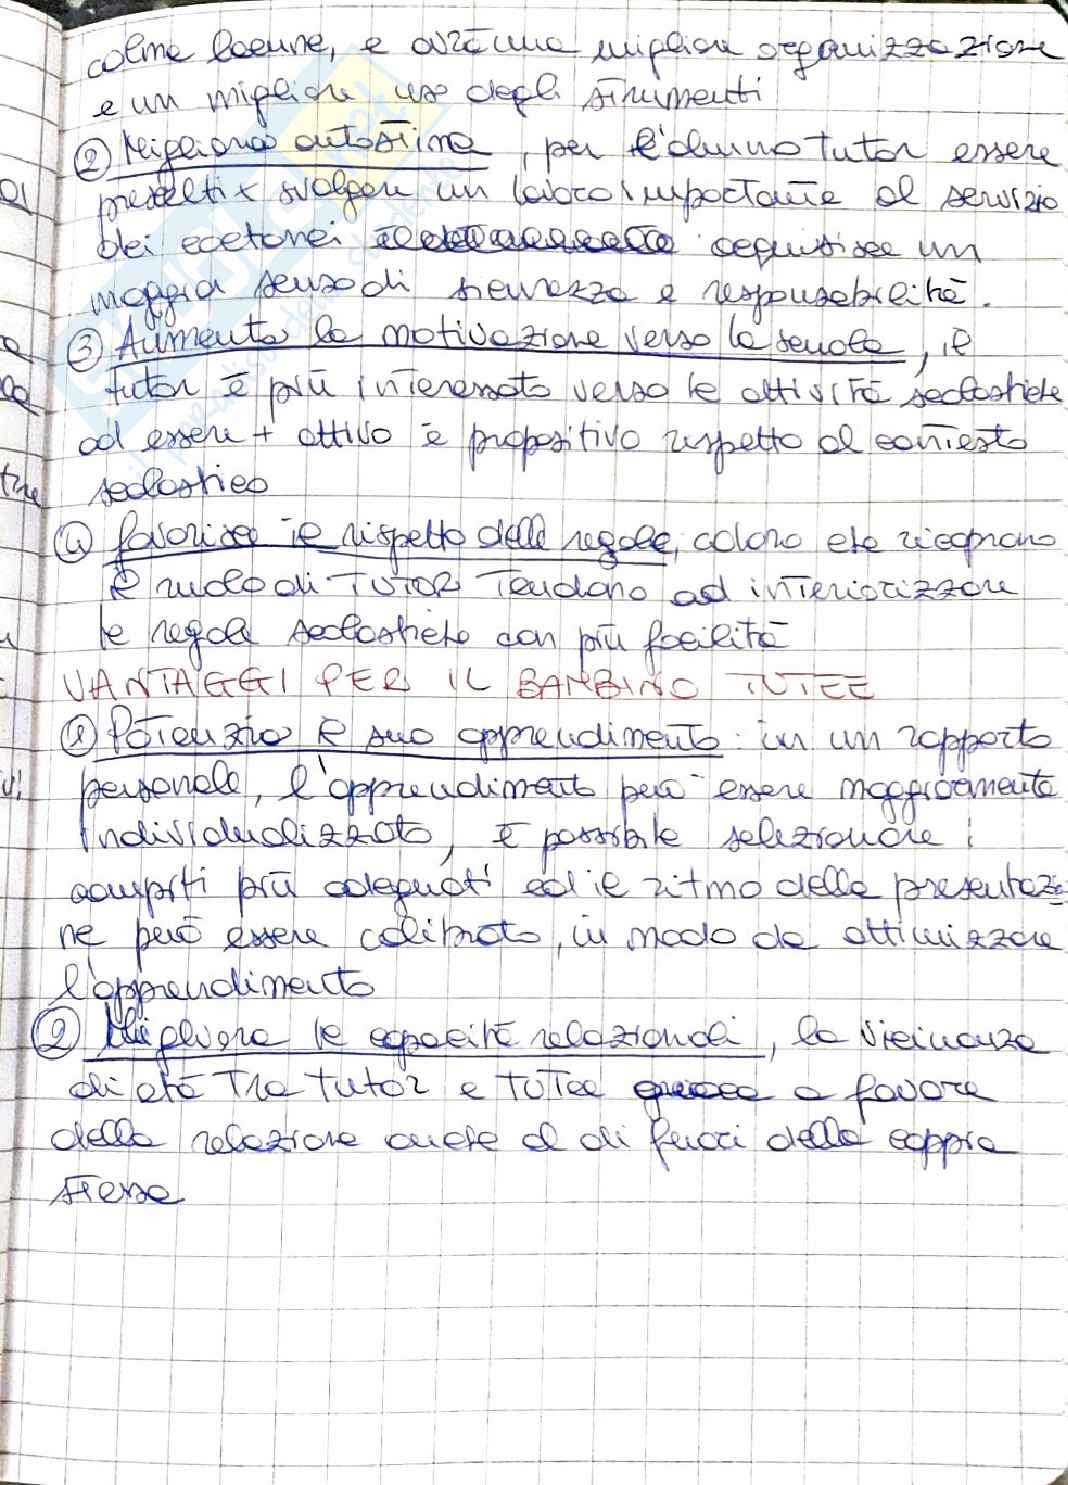 colma lacune, e avrà una migliore organizzazione
e un migliore uso degli strumenti
② Migliora autostima, per l'alunno tutor essere
prescelti x svolgere un lavoro importante al servizio
dei coetanei acquisisce un
maggior senso di sicurezza e responsabilità.
③ Aumenta la motivazione verso la scuola, il
tutor è più interessato verso le attività scolastiche
ad essere + attivo e propositivo rispetto al contesto
scolastico
④ favorisce il rispetto delle regole, coloro che ricoprono
il ruolo di TUTOR Tendono ad interiorizzare
le regole scolastiche con più facilità
VANTAGGI PER IL BAMBINO TUTEE
① Potenzia il suo apprendimento: in un rapporto
personale, l'apprendimento può essere maggiormente
individualizzato, è possibile selezionare i
compiti più adeguati ed il ritmo della presentazio
ne può essere calibrato, in modo da ottimizzare
l'apprendimento
② Migliora le capacità relazionali, la vicinanza
di età Tra tutor e tutee a favore
della relazione anche al di fuori della coppia
stessa